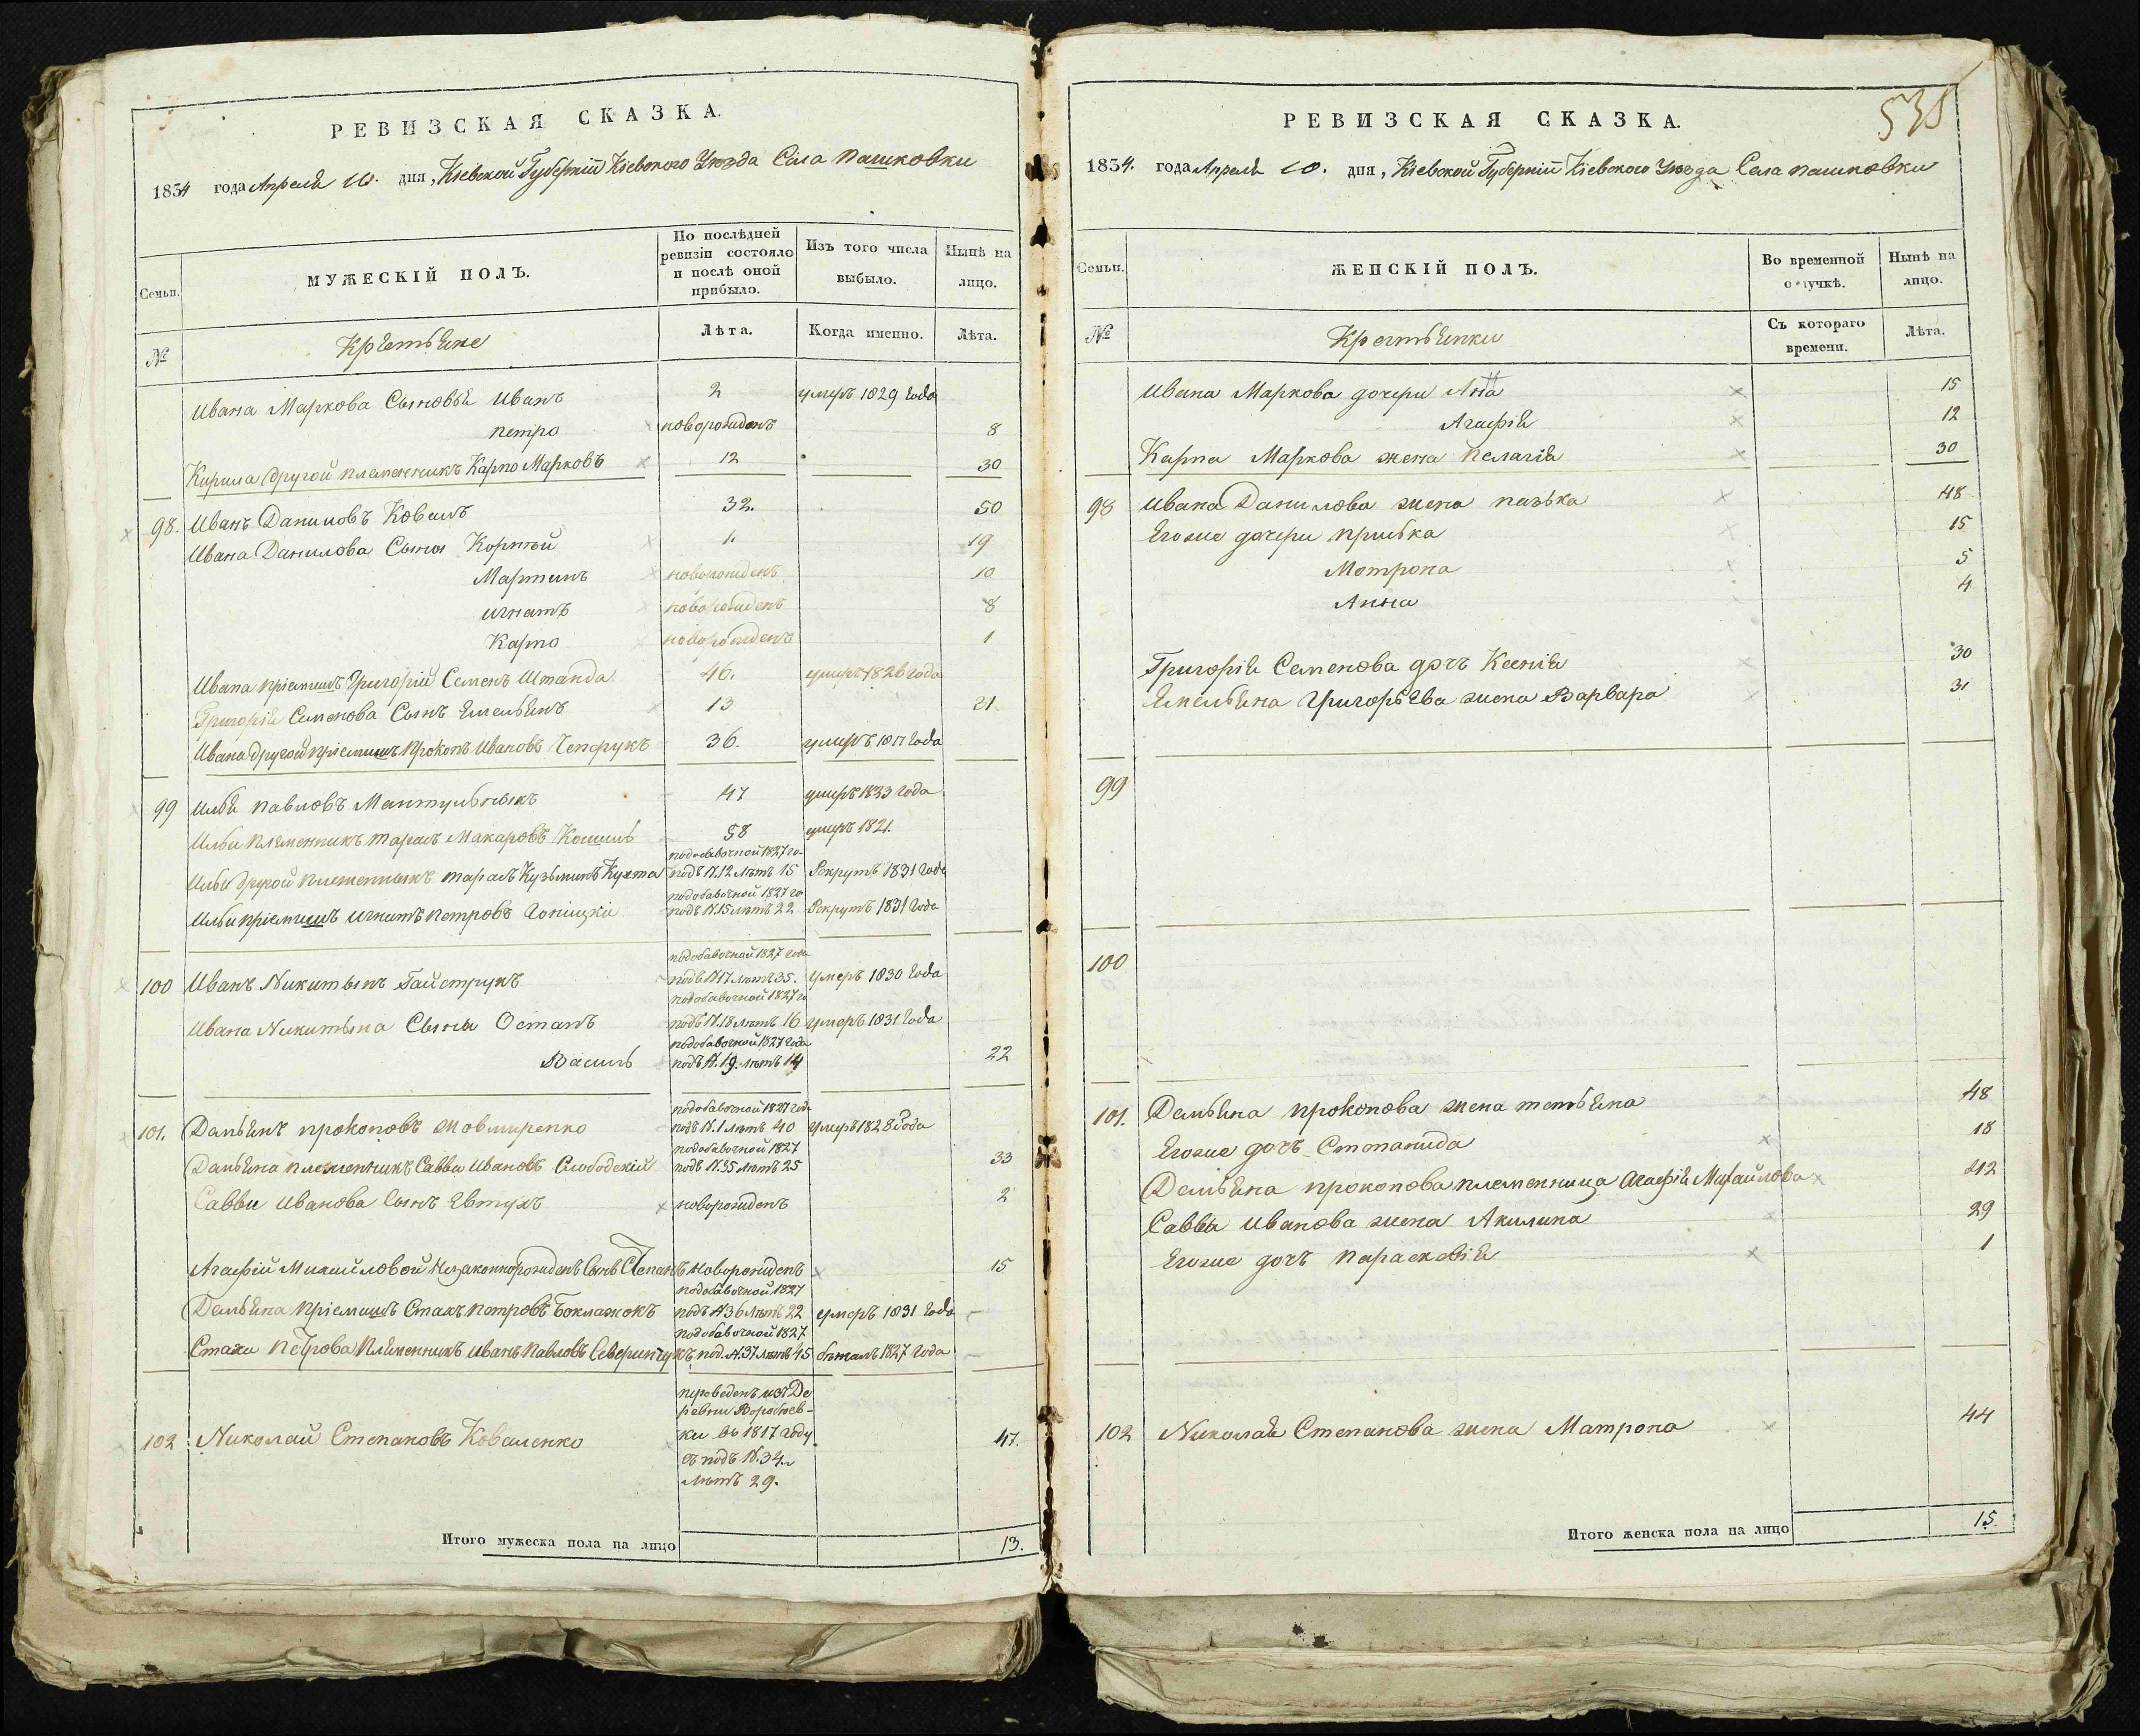 РЕВИЗСКАЯ СКАЗКА.
1834 года Апреля 10. дня, Кіевской Губерніи Кіевскаго Уѣзда Села Пашковки
Семьи.
МУЖЕСКІЙ ПОЛЪ.
По послѣдней ревизіи состояло и послѣ оной прибыло.
Изъ того числа выбыло.
Нынѣ на лицо.
№
Крестьяне
Лѣта.
Когда именно.
Лѣта.
Ивана Маркова Сыновья Иванъ 2 умеръ 1829 года
Петро новорожденъ 8
Кирила другой племенникъ Карпо Марковъ 12 30
98. Иванъ Даниловъ Коваль 32. 50
Ивана Данилова Сыны Корнѣй 1. 19
Мартинъ новорожденъ 10
Игнатъ новорожденъ 8
Карпо новорожденъ 1
Ивана пріемышъ Григорій Семенъ Штанда 46. умеръ 1826 года
Григорія Семенова Сынъ Емельянъ 13 21.
Ивана другой пріемышъ Прокопъ Ивановъ 36. умеръ года
99 Илья Павловъ 47 умеръ 1833 года
Ильи племенникъ Тарасъ Макаровъ 58 умеръ 1821.
Ильи другой племенникъ Тарасъ Кузьминъ Кухта по добавочной 1827 го подъ N.12 лѣтъ 15 Рекрутъ 1831 года
Ильи пріемышъ Игнатъ Петровъ по добавочной 1827 го подъ N.15 лѣтъ 22 Рекрутъ 1831 года
100 Иванъ Никитынъ Гайструкъ по добавочной 1827 года подъ N17 лѣтъ 35. умеръ 1830 года
Ивана Никитына Сыны Остапъ по добавочной 1827 го подъ N.18 лѣтъ 16 умеръ 1831 года
Василь по добавочной 1827 года подъ N.19. лѣтъ 14 22
101. Демьянъ Прокоповъ по добавочной 1827 года подъ N.1 лѣтъ 40 умеръ 1828 года
Демьяна племенникъ Савва Ивановъ Слободскій по добавочной 1827 подъ N.35 лѣтъ 25 33
Саввы Иванова Сынъ Евтухъ новорожденъ 2
Агафіи Михайловой незаконнорожденъ Сынъ Степанъ новорожденъ 15
Демьяна пріемышъ Стахъ Петровъ Боклажокъ по добавочной 1827 подъ N36 лѣтъ 22 умеръ 1831 года
Стахи Петрова племенникъ Иванъ Павловъ Северинчукъ по добавочной 1827 под. N.37 лѣтъ 45 бѣжалъ 1827 года
102 Николай Степановъ Коваленко переведенъ изъ Деревни Воробіевки въ 1817 году подъ N.34. лѣтъ 29. 47.
Итого мужеска пола на лицо 13.
535
РЕВИЗСКАЯ СКАЗКА.
1834. года Апреля 10. дня, Кіевской Губерніи Кіевскаго Уѣзда Села Пашковки
Семьи.
ЖЕНСКІЙ ПОЛЪ.
Во временной отлучкѣ.
Нынѣ на лицо.
№
Крестьянки
Съ котораго времени.
Лѣта.
Ивана Маркова дочери Анна 15
Агафія 12
Карпа Маркова жена Пелагія 30
98 Ивана Данилова жена Пазька 48
Егоже дочери Приська 15
Мотрона 5
Анна 4
Григорія Семенова дочъ Ксенія 30
Емельяна Григорьева жена Варвара 31
99
100
101. Демьяна Прокопова жена Татьяна 48
Егоже дочъ Степанида 18
Демьяна Прокопова племенница Агафія Михайлова 42
Саввы Иванова жена Акилина 29
Егоже дочъ Параскевія 1
102 Николая Степанова жена Матрона 44
Итого женска пола на лицо 15.